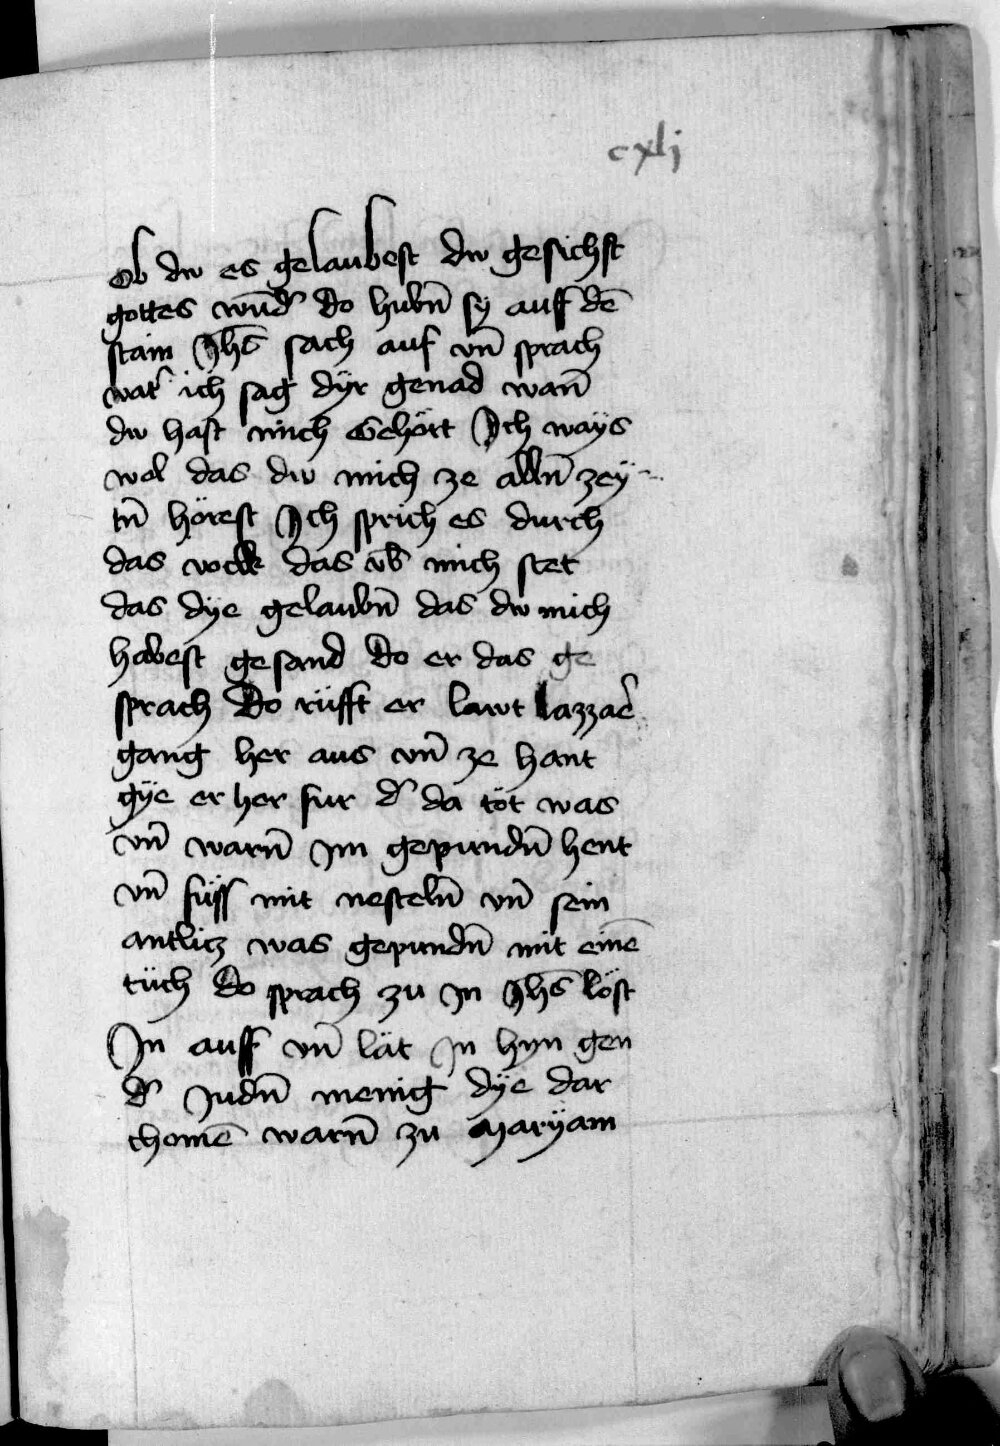 cxlj
Ob dw es gelaubest dw gesichst
gottes wūd' do hubn̄ sy auf dē
stain Jhs̄ sach auf vn̄ sprach
vat' ich sag dÿr genad wan̄
dw hast mich Gehört Jch ways
wol das dw mich ze alln̄ zey
tn̄ hörest Jch sprich es durch
das volk das vb̄ mich stet
das dÿe gelaubn̄ das dw mich
habest gesand do er das ge
sprach Do rüfft er lawt lazzar̄
gang her aus vn̄ ze hant
gÿe er her fur d' da töt was
vn̄ warn̄ Jm gepundn̄ hent
vn̄ füss mit nesteln̄ vn̄ sein
antlicz was gepundn̄ mit einē
tüch do sprach zu Jn Jhs̄ löst
Jn auff vn̄ lät Jn hyn gen
d' Judn̄ menig dÿe dar
chomē warn̄ zu Marÿam